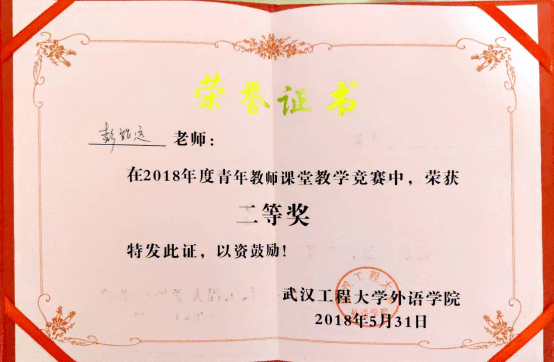 荣誉证书
老师：
在2018年度青年教师课堂教学竞赛中，荣获
二等奖
特发此证，以资鼓励！
武汉工程大学外语学院
2018年5月31日